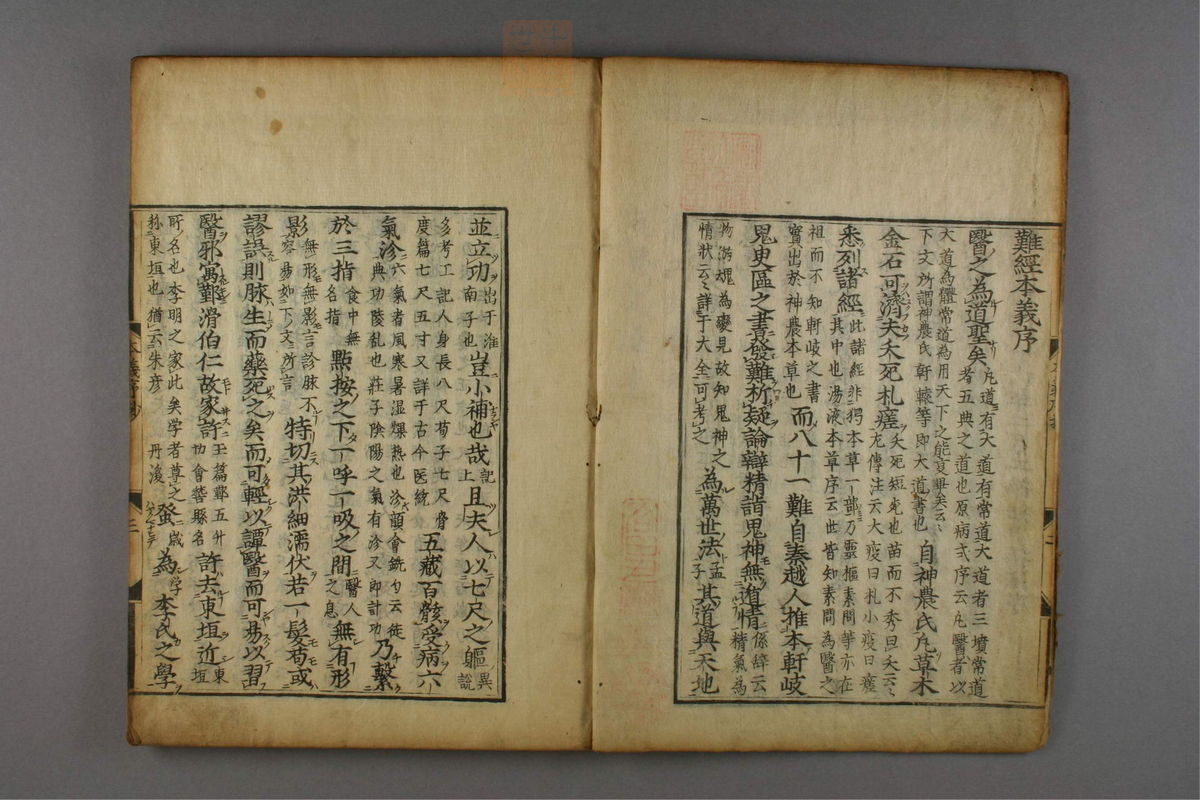 難經本義序
醫之為道聖矣 凡道有大道有常道大道者三墳常道者五典之道也原病式序云凡醫者以
大道為體常道為用天下之能事畢矣云云下文所謂神農氏軒轅等即大道書也 自神農氏凡草木
金石可濟夫夭死札瘥 夭死短死也苗而不秀曰夭云云左傳注云大疫曰札小疫曰瘥
悉列諸經 此諸經非獨本草一部乃靈樞素問等亦在其中也湯液本草序云世皆知素問為醫之
祖而不知軒岐之書實出於神農本草也 而八十一難自秦越人推本軒岐
鬼臾區之書發難析疑論辯精詣鬼神無遁情 係辞云精氣為
物游魂為變是故知鬼神之情狀云云詳于大全可考之 為萬世法 孟子 其道與天地
並立功 出于淮南子也 豈小補也哉 記上 且夫人以七尺之軀 異説
多考工記人身長八尺荀子七尺骨度篇七尺五寸又詳于古今医統 五藏百骸受病六
氣沴 六氣者風寒暑湿燥熱也沴韻會銑勺云徒典功陵乱也莊子陰陽之氣有沴又郎計功 乃繫
於三指 食中無名指 點按之下一呼一吸之間 醫人之息 無有形
影 無形無影言診脉不容易如下文所言 特切其洪細濡伏若一髮苟或
謬誤則脉生而藥死之矣而可輕以譚醫而可易以習
醫邪寓鄞滑伯仁故家許 玉篇鄞五斤切會稽縣名 許去東垣近 東垣
所名也李明之家此矣学者尊之称東垣也猶云朱彦 丹溪 蚤歲為 学 李氏之學